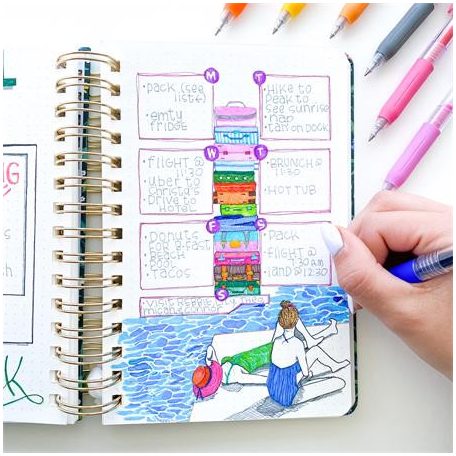 M
T
• pack (see
list)
• emty
fridge
• Hike to
peak to
see sunrise
• nap
• tan on dock
W
T
• flight @
11:30
• Uber to
• Drive to
hotel
• Brunch @
11:30
• Hot tub
F
S
• Donuts
for b-fast
• Beach
• Tacos
• Pack
• Flight @
7:30 am
• land @ 12:30
S
Visit